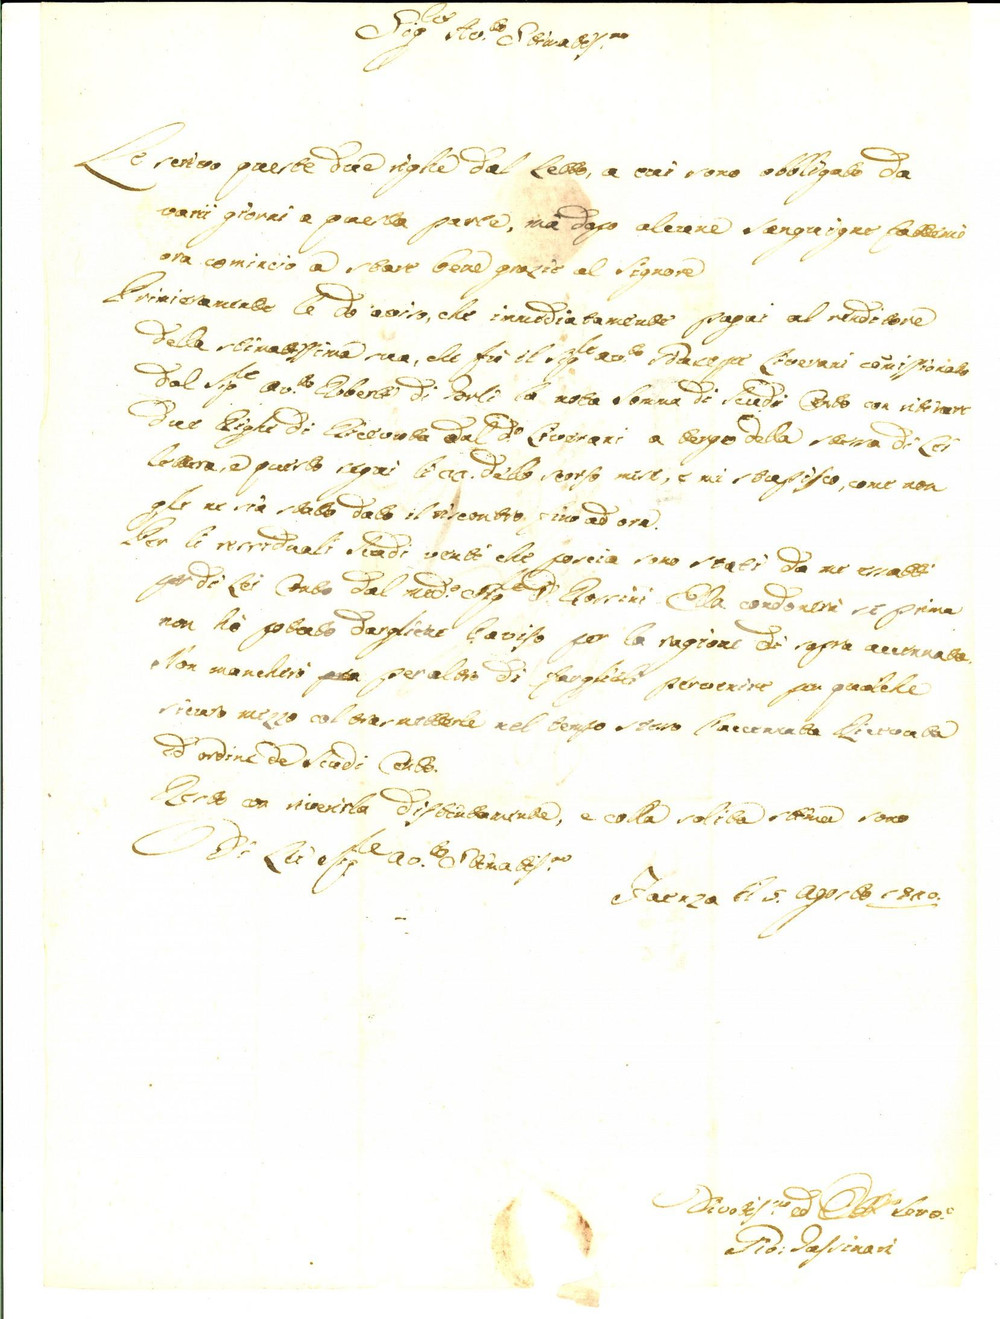 Sig.r Av.to Stimatis.mo
Le scrivo queste due righe dal Letto, a cui sono obbligato da
varii giorni a questa parte, ma dopo alcune sanguigne fattemi
ora comincio a stare bene grazie al Signore
Primieramente le do aviso, che immediatamente pagai al venditore
della stimatissima sua, che fu il Sig.re Av.to Liverani comissionato
dal Sig.re Av.to Roberto di Forlì la nota somma di Scudi Cento con ritirare
due Righe di Ricevuta dal d.o Liverani a tergo della stessa di Lei
lettera, e questo seguì li 22. dello scorso mese, e mi stupisco, come non
gle ne sia stato dato il riscontro fino ad ora.
Per li residuali Scudi venti che poscia sono stati da me esatti
per di Lei Conto dal med.o Sig.re D. Rossini Ella condonerà se prima
non hò potuto dargliene l'aviso per la ragione di sopra accennata.
Non mancherò per altro di farglieli pervenire per qualche
sicuro mezzo col trasmetterle nel tempo stesso l'accennata Ricevuta
d'ordine de Scudi Cento.
Resto con riverirla distintamente, e colla solita stima sono
Di Lei Sig.re Av.to Stimatis.mo
Faenza li 5. Agosto 1820.
Divotis.mo ed Obb.mo Servo.e
Gio: Tassinari